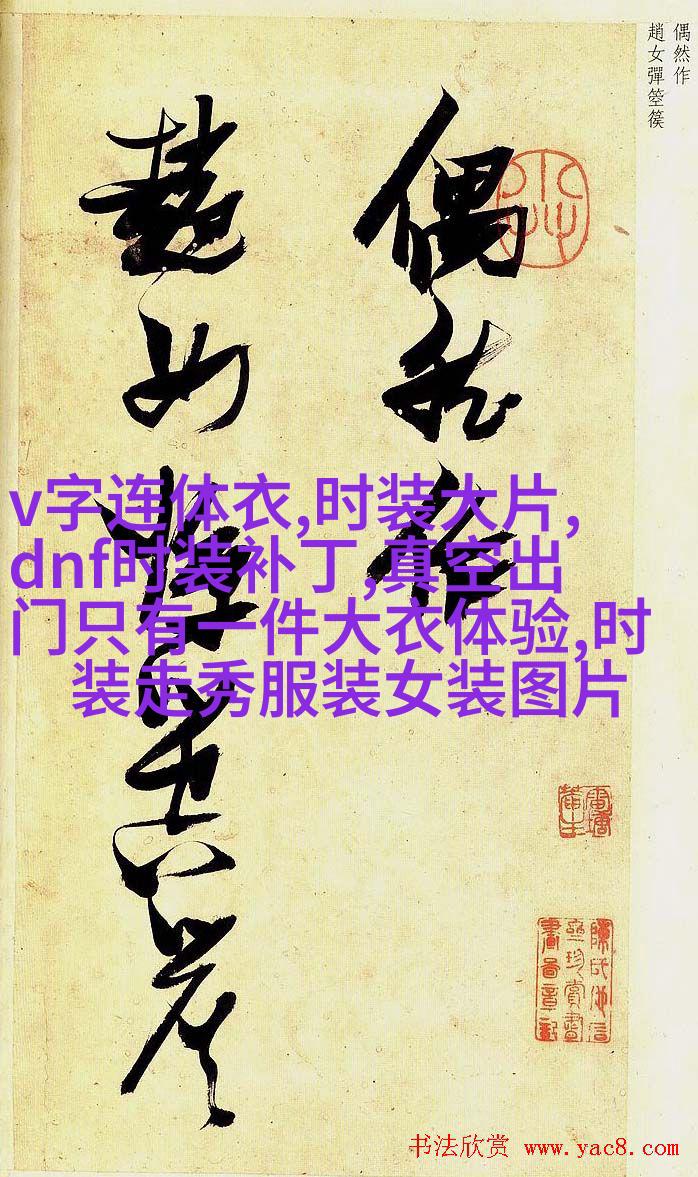 偶然作
趙女彈箜篌
偶然作
趙女彈箜篌
v字连体衣,时装大片,
dnf时装补丁,真空出
门只有一件大衣体验,时
装走秀服装女装图片
书法欣赏 www.yac8.com